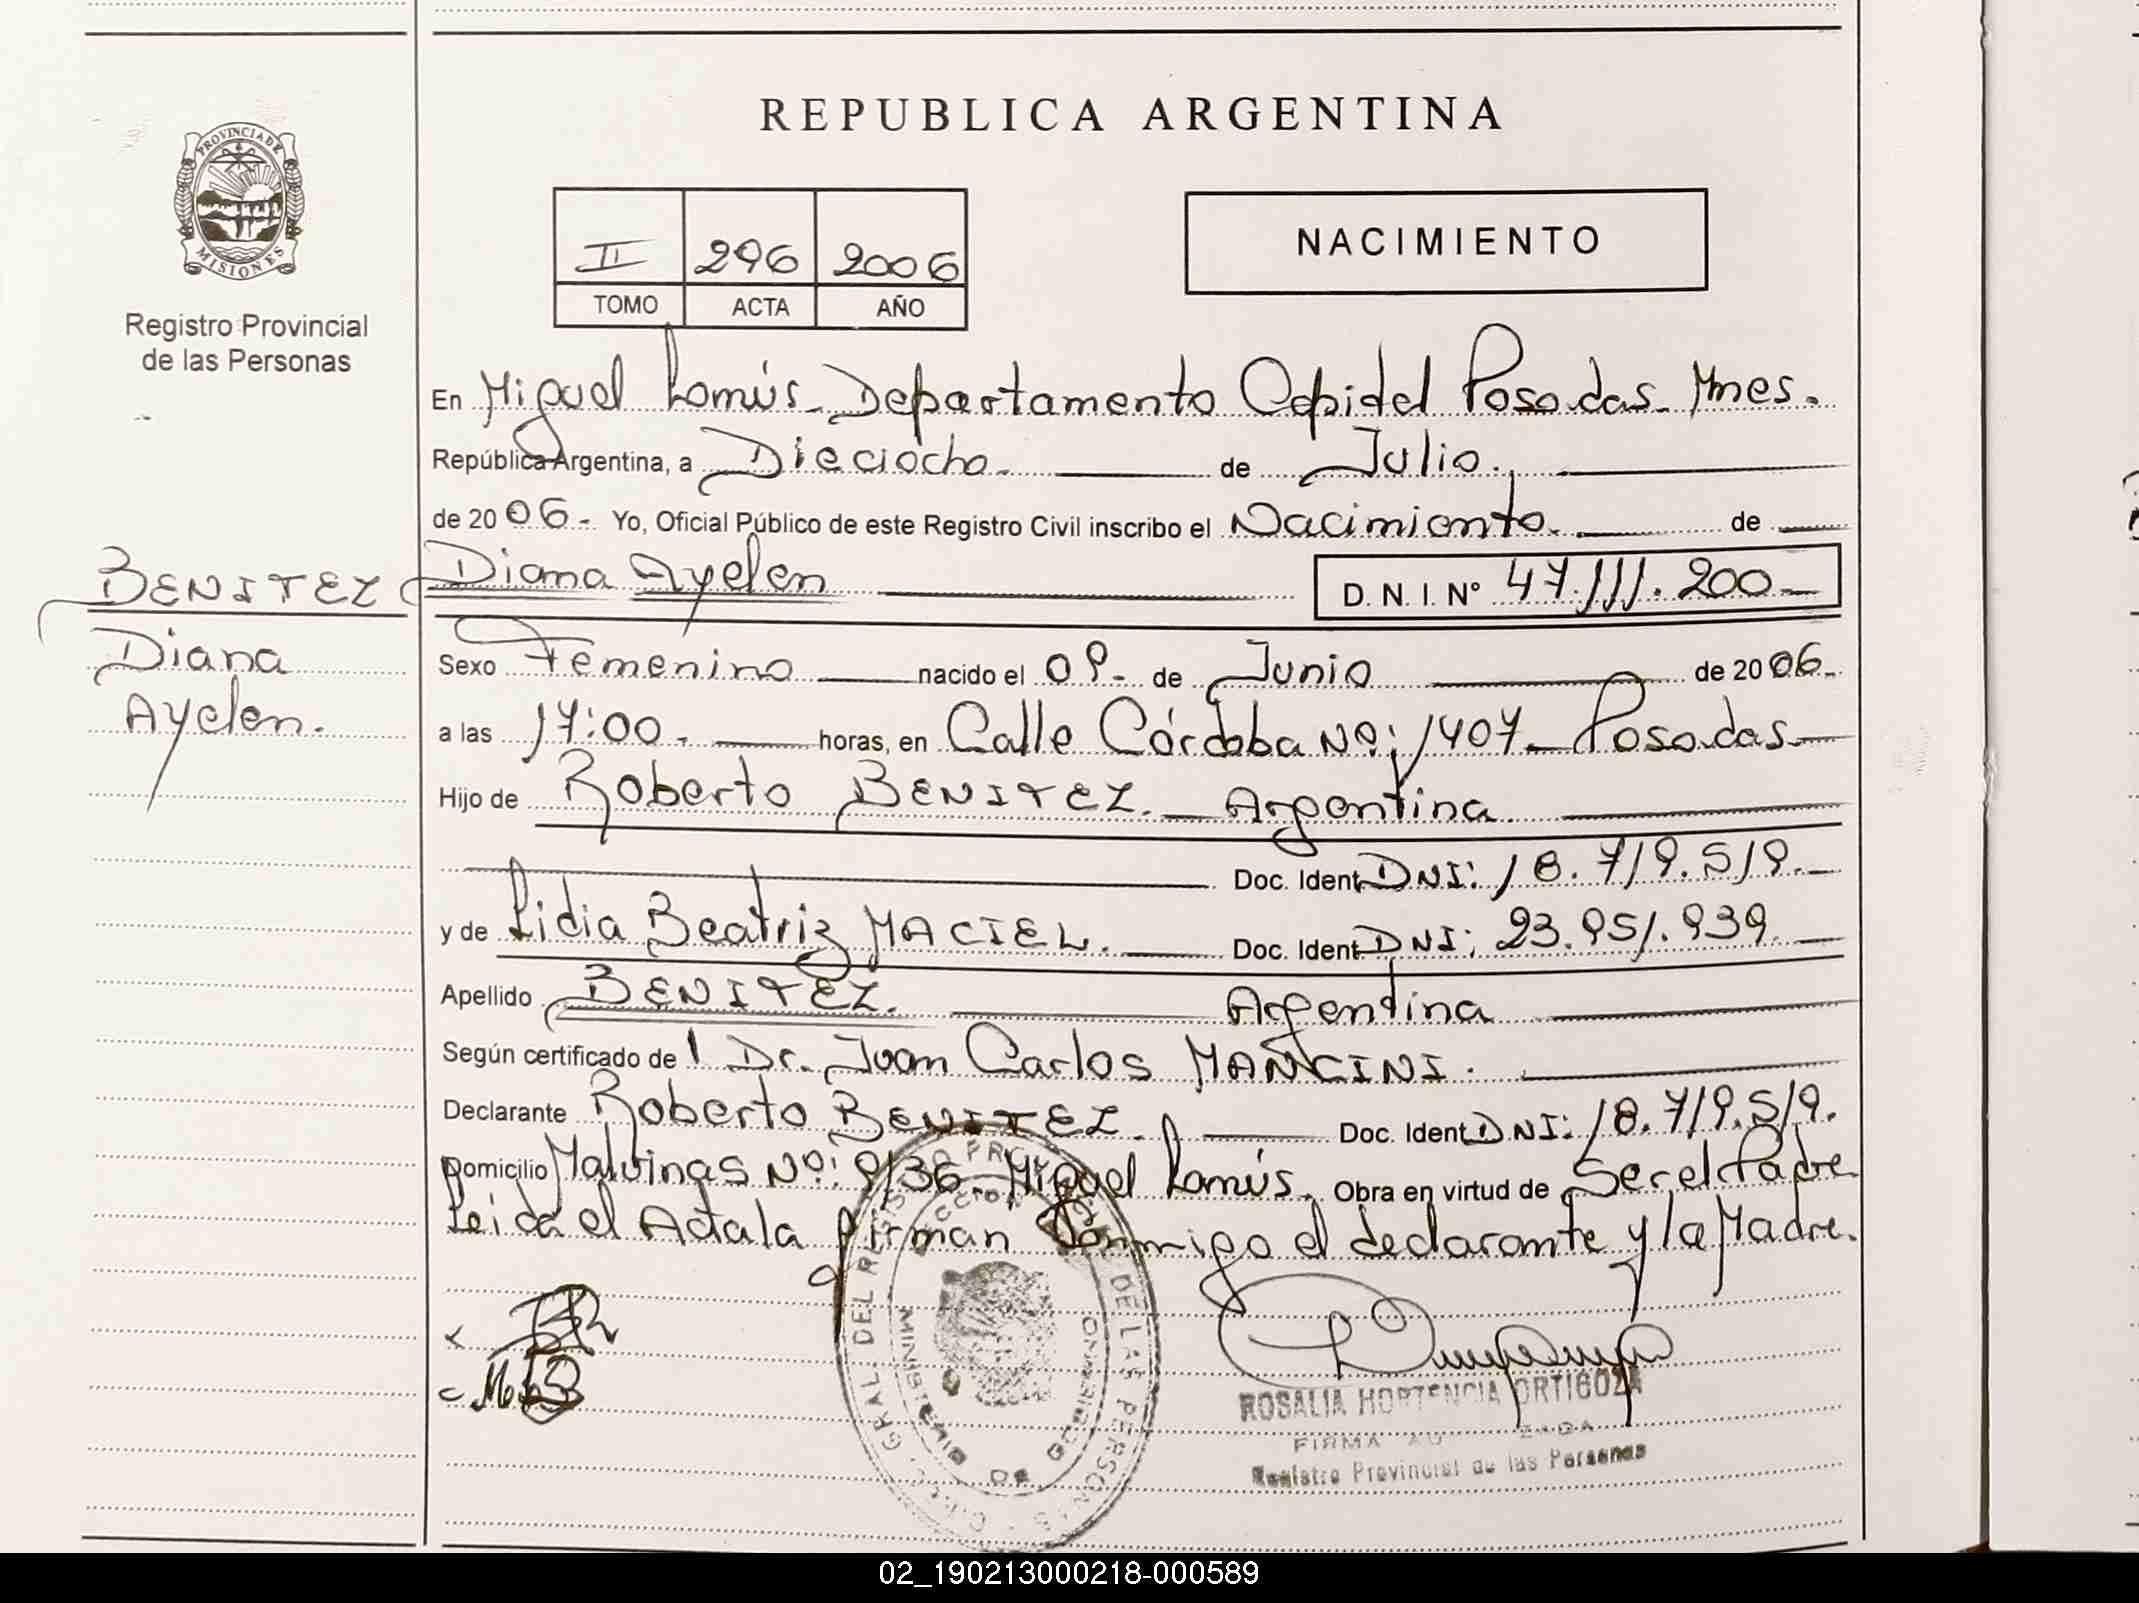 REPUBLICA ARGENTINA
PROVINCIA DE
MISIONES
Registro Provincial
de las Personas
II 296 2006
TOMO ACTA AÑO
NACIMIENTO
En Miguel Lanús - Departamento Capital Posadas - Mnes.
República Argentina, a Dieciocho. de Julio.
de 2006.- Yo, Oficial Público de este Registro Civil inscribo el Nacimiento. de
BENITEZ
Diana
Ayelen.
Diana Ayelen D. N. I. Nº 47.111.200.-
Sexo Femenino nacido el 09.- de Junio de 2006.-
a las 17:00.- horas, en Calle Córdoba Nº: 1407 - Posadas.-
Hijo de Roberto BENITEZ. - Argentina
Doc. Ident DNI: 18.719.519.-
y de Lidia Beatriz MACIEL. Doc. Ident DNI: 23.951.939.
Apellido BENITEZ. Argentina
Según certificado del Dr. Juan Carlos MANCINI.
Declarante Roberto BENITEZ. Doc. Ident DNI: 18.719.519.
Domicilio Malvinas Nº: 9136 - Miguel Lanús. Obra en virtud de Ser el Padre
Leida el Acta la firman Conmigo el declarante y la Madre.
ROSALIA HORTENCIA ORTIGOZA
FIRMA
Registro Provincial de las Personas
02_190213000218-000589